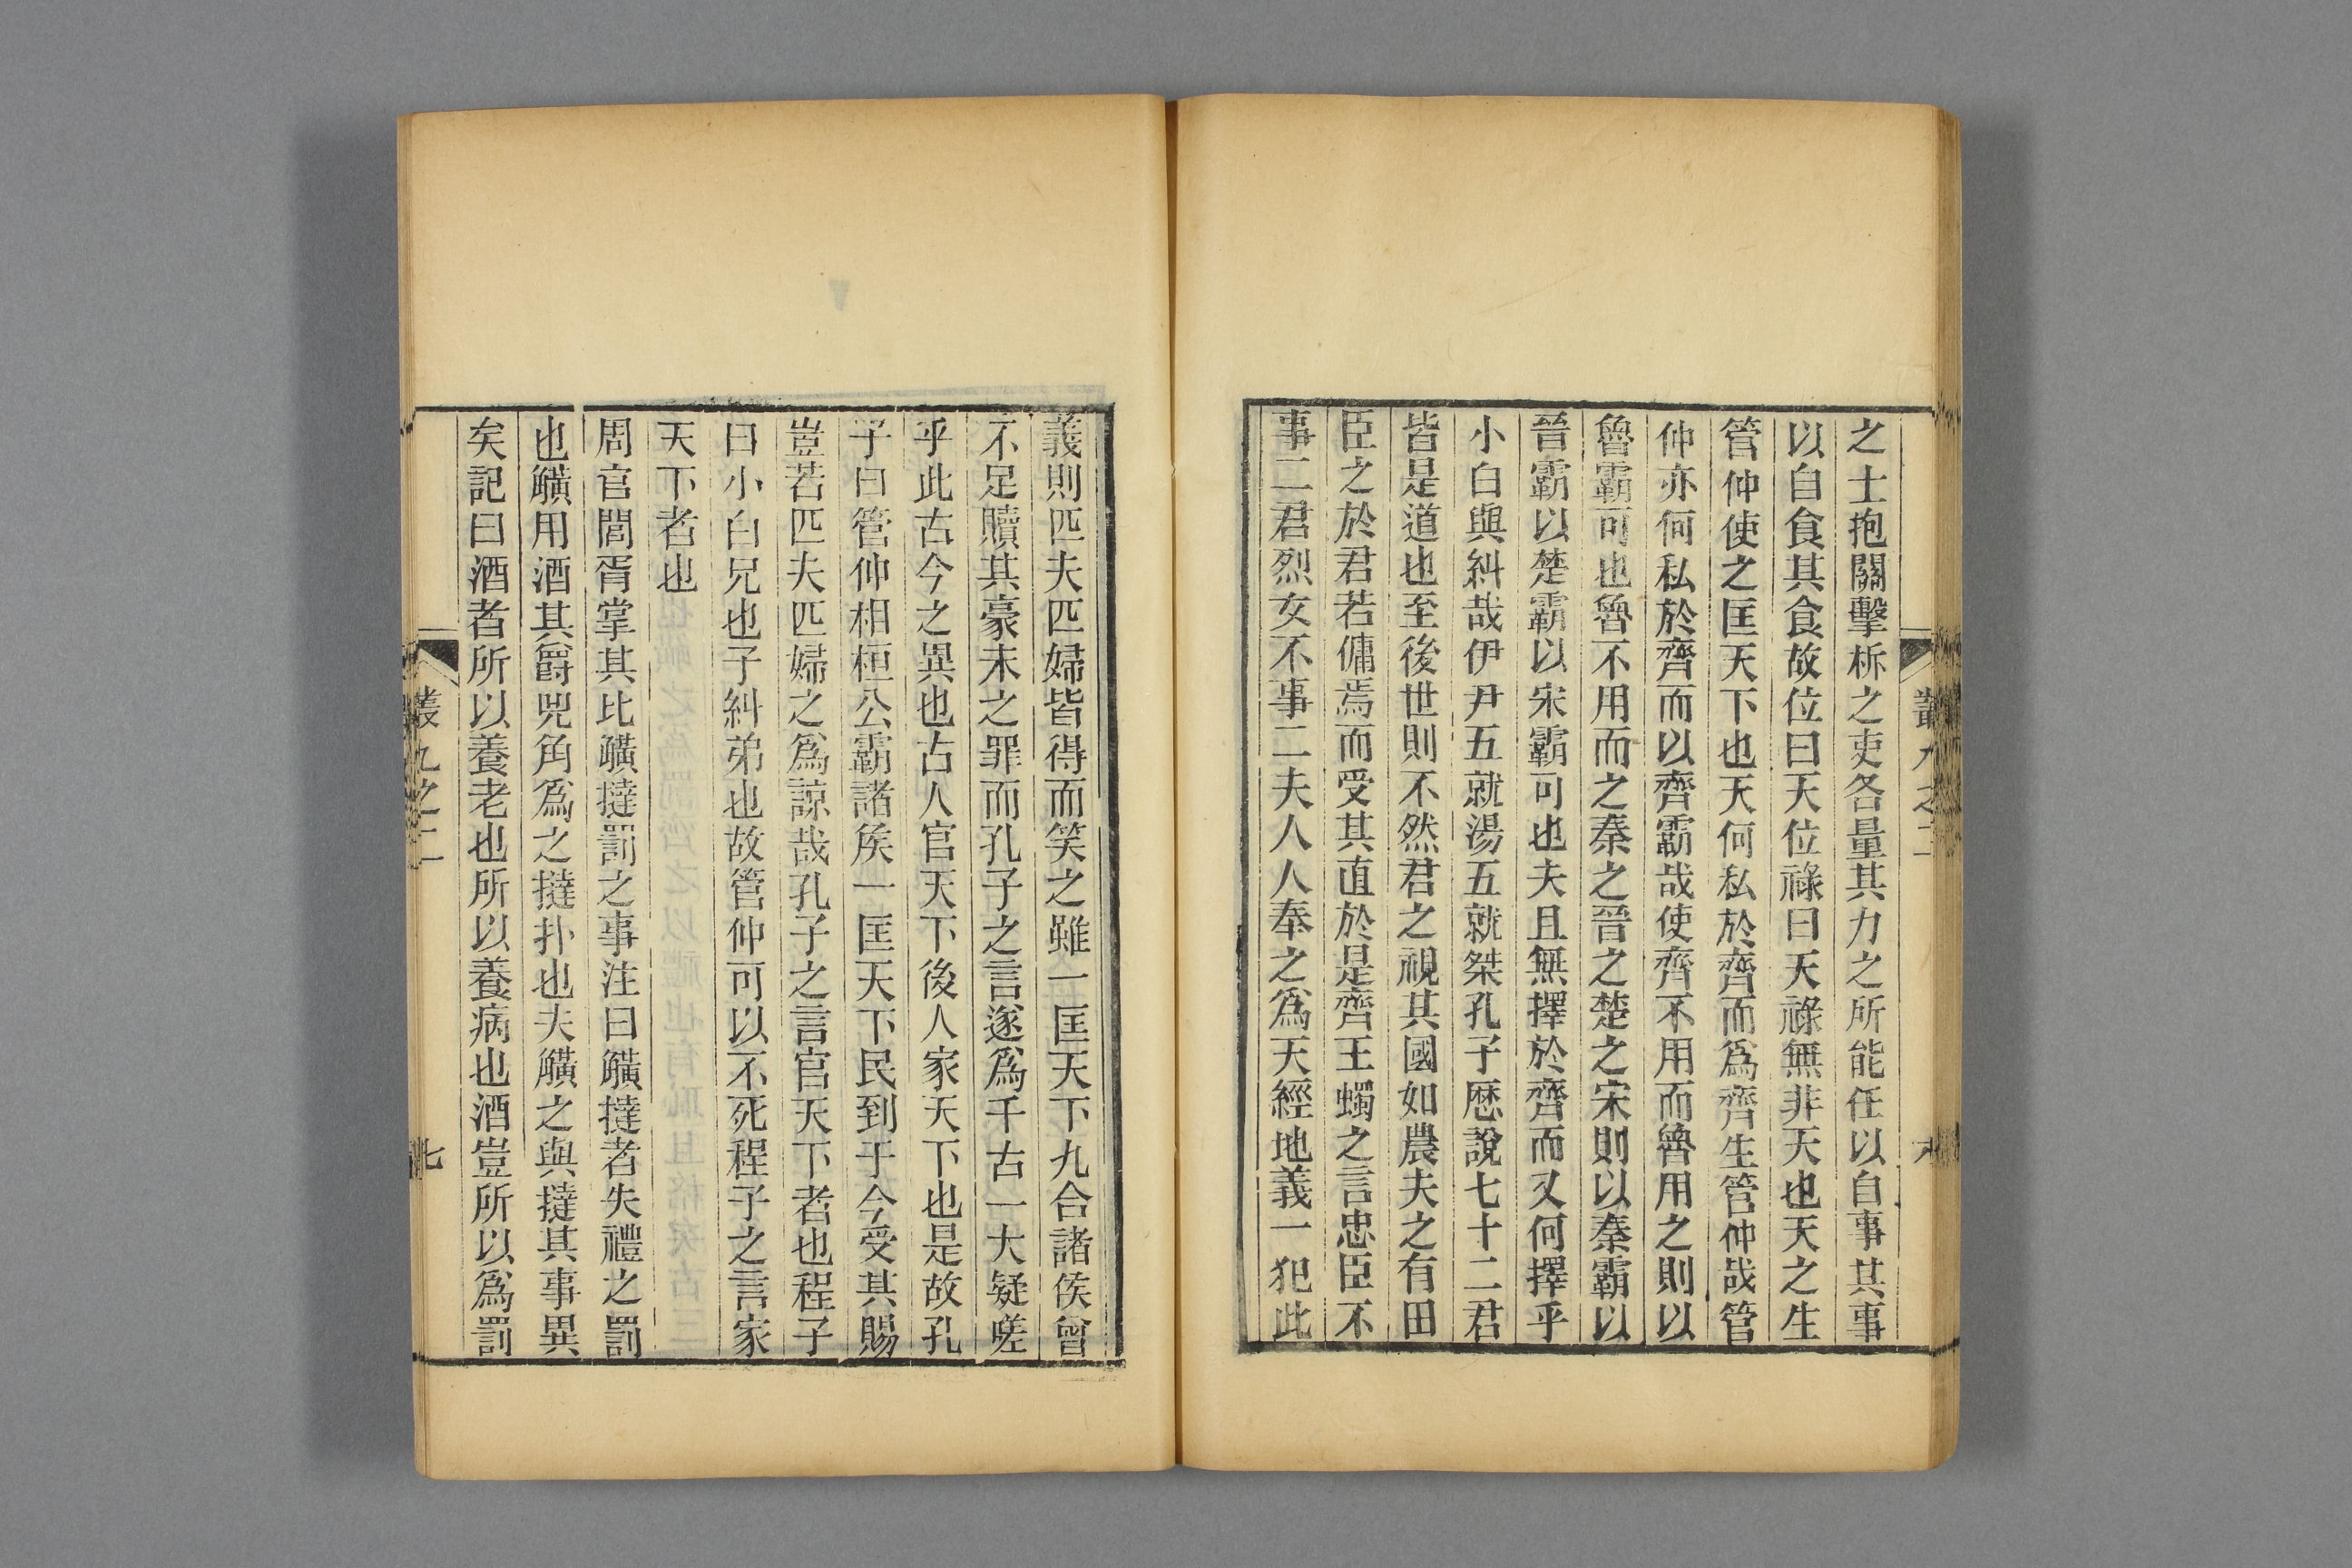 之士抱關擊柝之吏各量其力之所能任以自事其事
以自食其食故位曰天位祿曰天祿無非天也天之生
管仲使之匡天下也天何私於齊而爲齊生管仲哉管
仲亦何私於齊而以齊霸哉使齊不用而魯用之則以
魯霸可也魯不用而之秦之晉之楚之宋則以秦霸以
晉霸以楚霸以宋霸可也夫且無擇於齊而又何擇乎
小白與糾哉伊尹五就湯五就桀孔子歷說七十二君
皆是道也至後世則不然君之視其國如農夫之有田
臣之於君若傭焉而受其直於是齊王蠋之言忠臣不
事二君烈女不事二夫人人奉之爲天經地義一犯此
叢九之二
六
義則匹夫匹婦皆得而笑之雖一匡天下九合諸侯曾
不足贖其豪末之罪而孔子之言遂爲千古一大疑嗟
乎此古今之異也古人官天下後人家天下也是故孔
子曰管仲相桓公霸諸侯一匡天下民到于今受其賜
豈若匹夫匹婦之爲諒哉孔子之言官天下者也程子
曰小白兄也子糾弟也故管仲可以不死程子之言家
天下者也
周官閭胥掌其比觵撻罰之事注曰觵撻者失禮之罰
也觵用酒其爵兕角爲之撻扑也夫觵之與撻其事異
矣記曰酒者所以養老也所以養病也酒豈所以爲罰
叢九之二
七